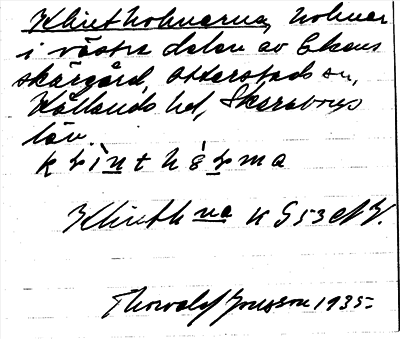 Klintholmarna, holmar
i västra delen av Ekens
skärgård, Otterstads sn,
Kållands hd, Skaraborgs
län.
Klinth na K G 53
Thorvald Jonsson 1935